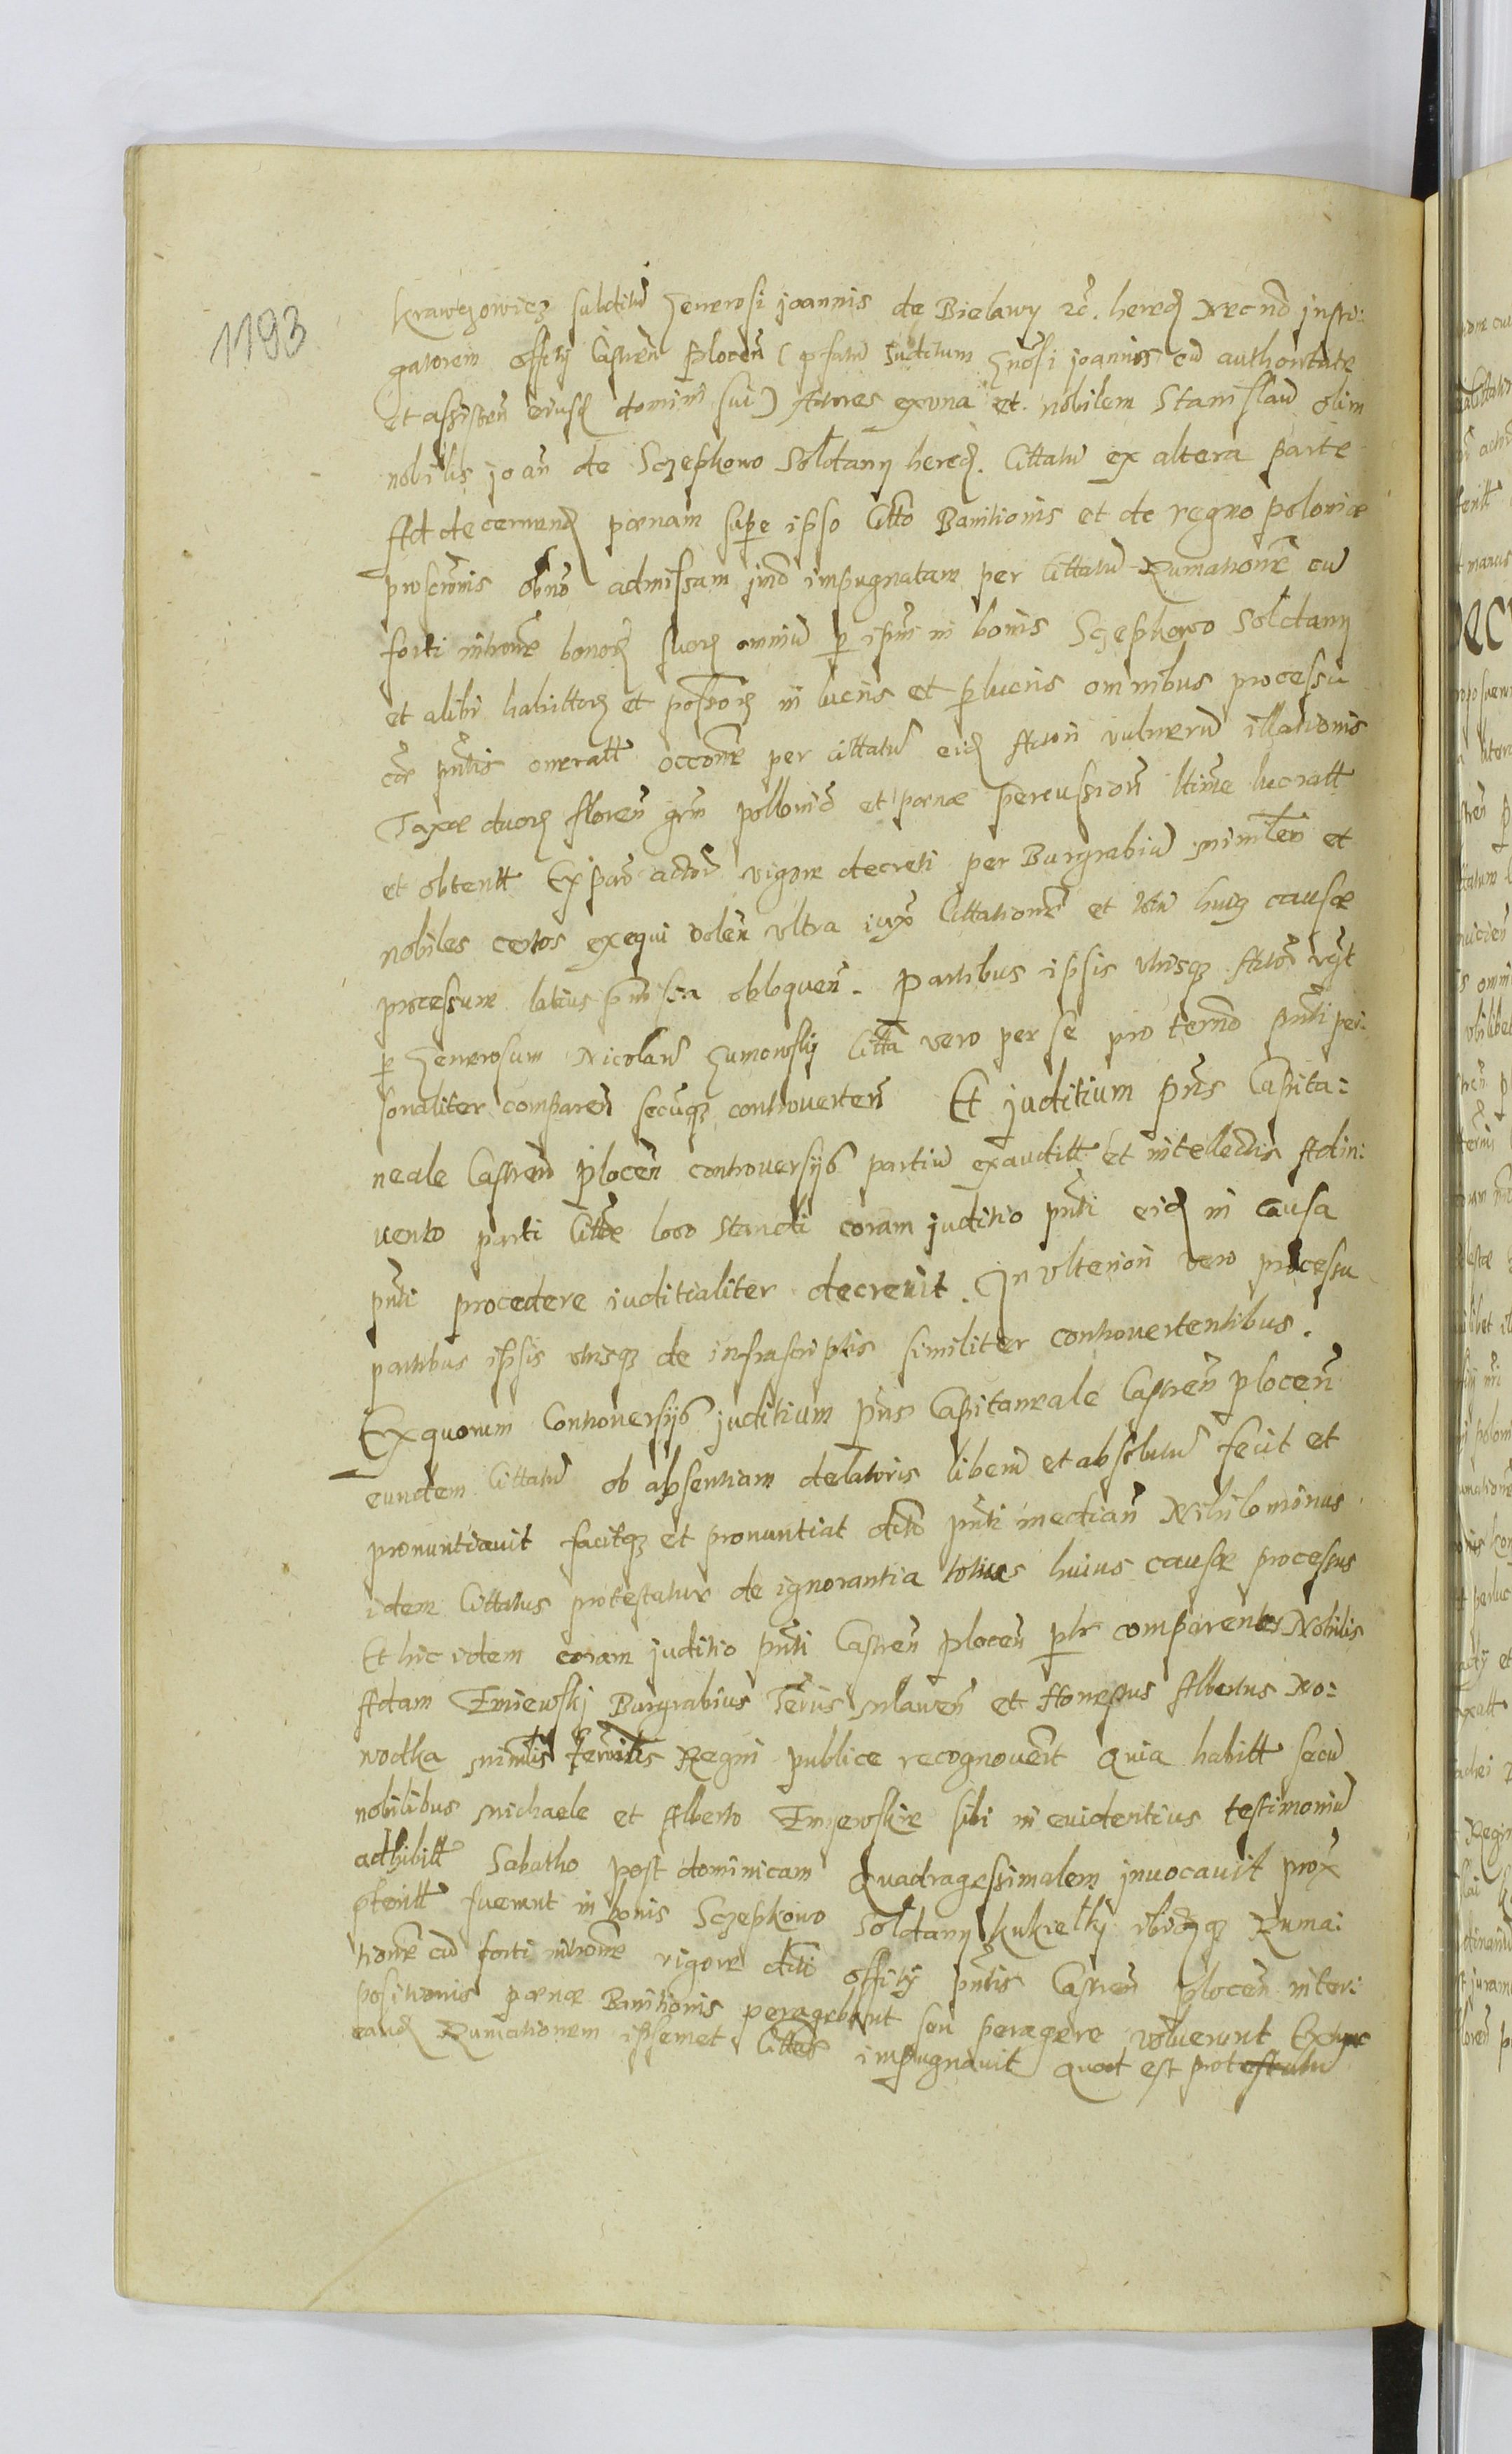 1193
Krawczowicz subditū Generosi joannis de Bielawy ꝛc. heredꝫ necnō insti:
gatorem Officij Castreñ Plocen̄ (pfatū suditum Gnōsi joannis cū authoritate
et assisten̄ eiusdꝫ domini sui) Actores exvna et nobilem Stanislaū olim
nobilis joān de Sczepkowo Soldany heredꝫ. Cittatū ex altera parte
Ad decernendꝫ pœnam supe ipso Citto Banitionis et de regno poloniæ
proscrōnis obnō admissam jmō impugnatam per Cittatū Rumationē cū
forti intronē bonorꝫ suorꝫ omniū p ipm̄ in bonis Sczepkowo Soldany
et alibi habittorꝫ et possorꝫ in lucris et plucris omnibus processu
cōr pn̄tis oneratt occōne per cittatū eidꝫ Actori vulnerū illationis
Taxæ duorꝫ floren̄ grm̄ pollonicō et pœnæ percussion̄ ltime lucratt
et obtentt Ex parte actorū vigore decreti per Burgrabiū minl̄em et
nobiles certos exequi volen̄ vltra iuxō Cittationē et ltm̄ huiꝫ causæ
processum latius pmissa obloquen̄. Partibus ipsis vtrisqꝫ Actorē vꝫt
p Generosum Nicolaū Gumowskij Citto vero per se pro termō pn̄ti per:
sonaliter comparen̄ secūqꝫ controuerten̄ Et juditium pn̄s Capita:
neale Castren̄ Plocen̄ controuersijs partiū exauditt et intellectis Adin:
uento parti Cittæ loco standi coram juditio pn̄ti eidꝫ in causa
pn̄ti procedere iuditialiter decreuit. In vlteriori vero processu
partibus ipsis vtrisqꝫ de infrascriptis similiter controuertentibus.
Exquorum Controuersijs juditium pn̄s Capitaneale Castren̄ plocen̄
eundem Cittatū ob absentiam delatoris liberū et absolutū fecit et
pronuntiauit facitqꝫ et pronuntiat dcto pn̄ti median̄ Nihilominus
idem Cittatus protestatur de ignorantia totius huius causæ processus
Et hic idem coram juditio pn̄ti Castren̄ plocen̄ plr comparentes Nobilis
Adam Zmiewskj Burgrabius Terrīs Mlauen̄ et Honestus Albertus No:
wodka minlis terrilis Regni publice recognouerīt quia habitt secū
nobilibus Michaele et Alberto Zmiewskie sibi in euidentius testimoniū
adhibitt Sabatho post dominicam Quadragessimalem jnuocauit prox̄
pteritt fuerunt in bonis Sczepkowo Soldany Kukielkj ibidꝫqꝫ Ruma:
tionē cū forti intronē vigore dcti officij pn̄tis Castren̄ plocen̄ inter:
positionis pœnæ Banitionis peragebant seu peragere voluerunt Extunc
eandꝫ Rumationem ipsemet Cittatꝯ impugnauit quod est protestatū